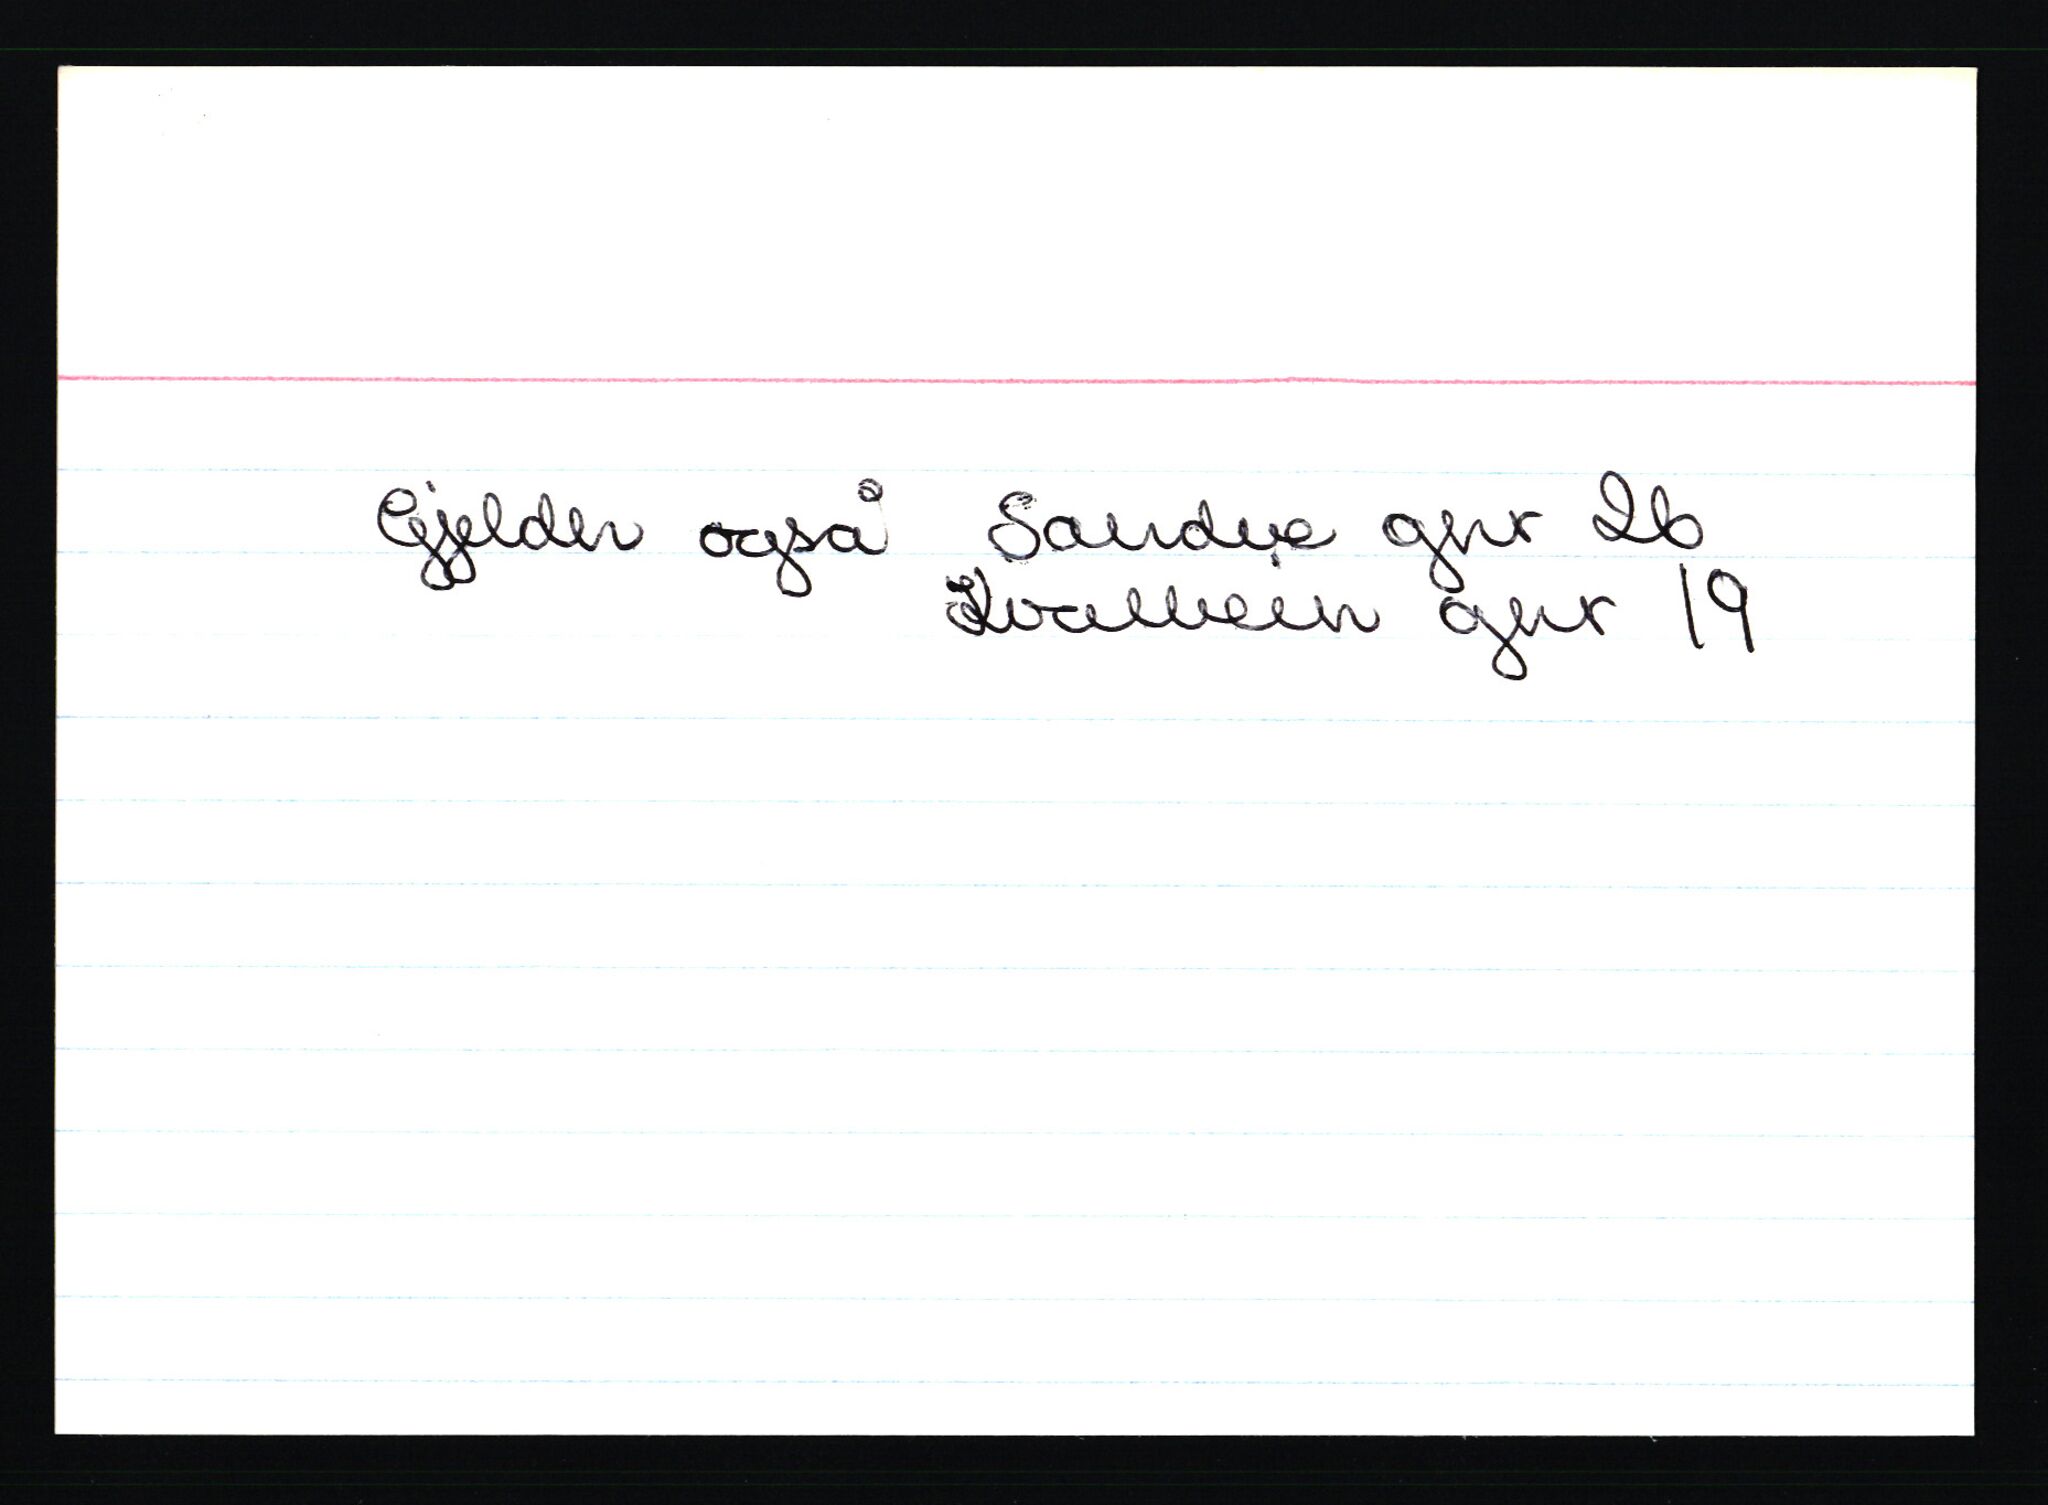 Gjelder også Sandve gnr 26
Kvalheim gnr 19